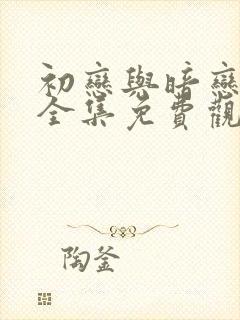 初戀與暗戀
全集免費觀
陶釜